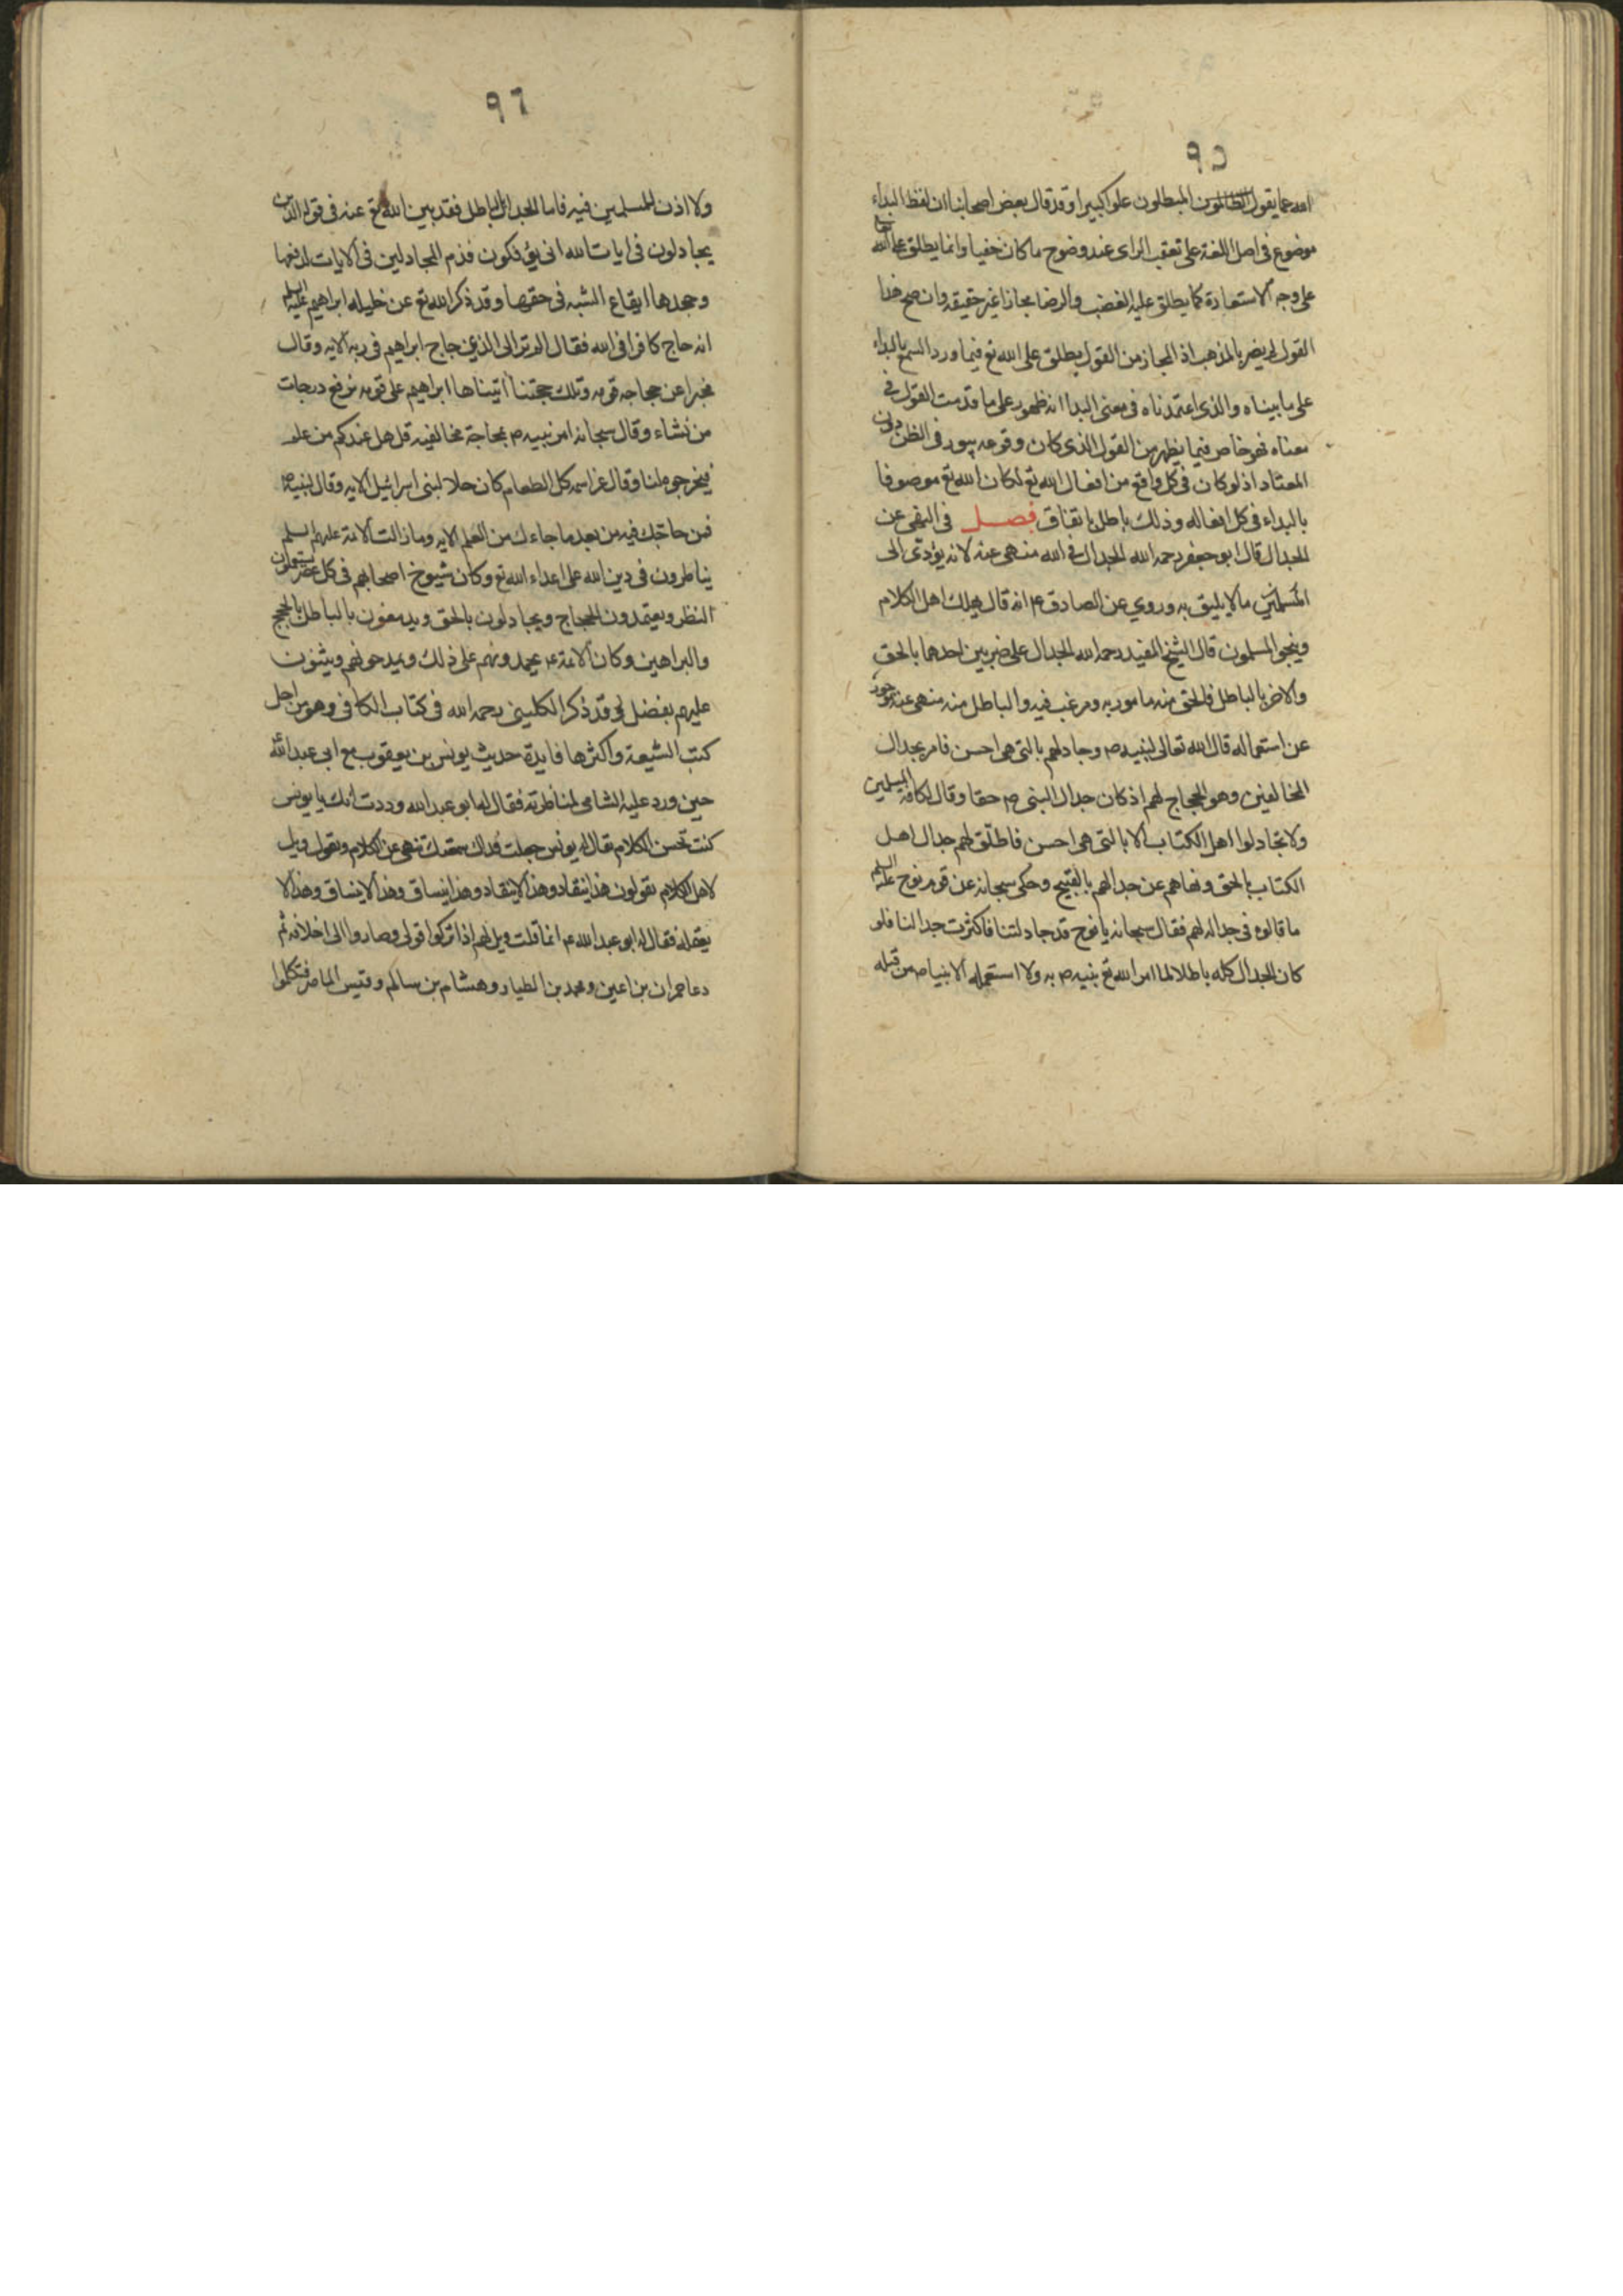 ٩٥
الله عما يقول الظالمون المبطلون علوا كبيرا وقد قال بعض اصحابنا ان لفظ البداء
موضوع فى اصل اللغة على تعقب الراى عند وضوح ما كان خفيا وانما يطلق على الله تع
على وجه الاستعارة كما يطلق عليه الغضب والرضا مجازا غير حقيقه وان صح هذا
القول لم يضر بالمذهب اذ المجاز من القول يطلق على الله تع فيما ورد السمع بالبداء
على ما بيناه والذى اعتمدناه فى معنى البدا انه ظهور على ما قدمت القول فى
معناه فهو خاص فيما يظهر من القول الذى كان وقوعه يبعد فى الظن دون
المعتاد اذ لو كان فى كل واقع من افعال الله تع لكان الله تع موصوفا
بالبداء فى كل افعاله وذلك باطل باتفاق فصل فى النهى عن
الجدال قال ابو جعفر رحمه الله الجدال فى الله منهى عنه لانه يؤدى الى
المتكلمين ما لا يليق به وروي عن الصادق ع انه قال يهلك اهل الكلام
وينجى المسلمون قال الشيخ المفيد رحمه الله الجدال على ضربين احدها بالحق
والاخر بالباطل فالحق منه مامور به ومرغب فيه والباطل منه منهى عنه مزجور
عن استعماله قال الله تعالى لنبيه ص وجادلهم بالتى هى احسن فامر بجدال
المخالفين وهو الحجاج لهم اذ كان جدال النبى ص حقا وقال لكافة المسلمين
ولا تجادلوا اهل الكتاب الا بالتى هى احسن فاطلق لهم جدال اهل
الكتاب بالحق ونهاهم عن جدالهم بالقبيح وحكى سبحانه عن قوم نوح عليه السلم
ما قالوه فى جداله لهم فقال سبحانه يا نوح قد جادلتنا فاكثرت جدالنا فلو
كان الجدال كله باطلا لما امر الله تع بنبيه ص به ولا استعمله الانبياء من قبله
٩٦
ولا اذن للمسلمين فيه فاما الجدال بالباطل فقد بين الله تع عنه فى قوله الذين
يجادلون فى ايات الله انى يؤفكون فذم المجادلين فى الايات لدفعها
وجحدها ايقاع الشبه فى حقها وقد ذكر الله تع عن خليله ابراهيم عليه السلم
انه حاج كافرا فى الله فقال الم تر الى الذى حاج ابراهيم فى ربه الايه وقال
مخبرا عن حجاجه قومه وتلك حجتنا اتيناها ابراهيم على قومه نرفع درجات
من نشاء وقال سبحانه امر نبيه ص بمحاجة مخالفيه قل هل عندكم من علم
فتخرجوه لنا وقال عز اسمه كل الطعام كان حلا لبنى اسرائيل الايه وقال لنبيه ص
فمن حاجك فيه من بعد ما جاءك من العلم الايه وما زالت الائمة عليهم السلم
يناظرون فى دين الله على اعداء الله تع وكان شيوخ اصحابهم فى كل عصر يستعملون
النظر ويعتمدون الحجاج ويجادلون بالحق ويدمغون بالباطل بالحجج
والبراهين وكان الائمة ع يحمدونهم على ذلك ويمدحونهم ويثنون
عليهم بفضل وقد ذكر الكلينى رحمه الله فى كتاب الكافى وهو من اجل
كتب الشيعة واكثرها فايدة حديث يونس بن يعقوب مع ابى عبد الله
حين ورد عليه الشامى لمناظرته فقال له ابو عبد الله وددت انك يا يونس
كنت تحسن الكلام فقال له يونس جعلت فداك سمعتك تنهى عن الكلام وتقول ويل
لاهل الكلام يقولون هذا ينقاد وهذا لا ينقاد وهذا ينساق وهذا لا ينساق وهذا لا
يعقله فقال له ابو عبد الله ع انما قلت ويل لهم اذا تركوا قولى وصاروا الى خلافه ثم
دعا حمران بن اعين ومحمد بن الطيار وهشام بن سالم وقيس الماصر فتكلموا